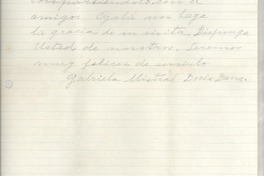 con el
amigos. Ojalá nos haga
la gracia de su visita. Disponga
Usted de nosotras. Seremos
muy felices de
Gabriela Mistral Doris Dana.